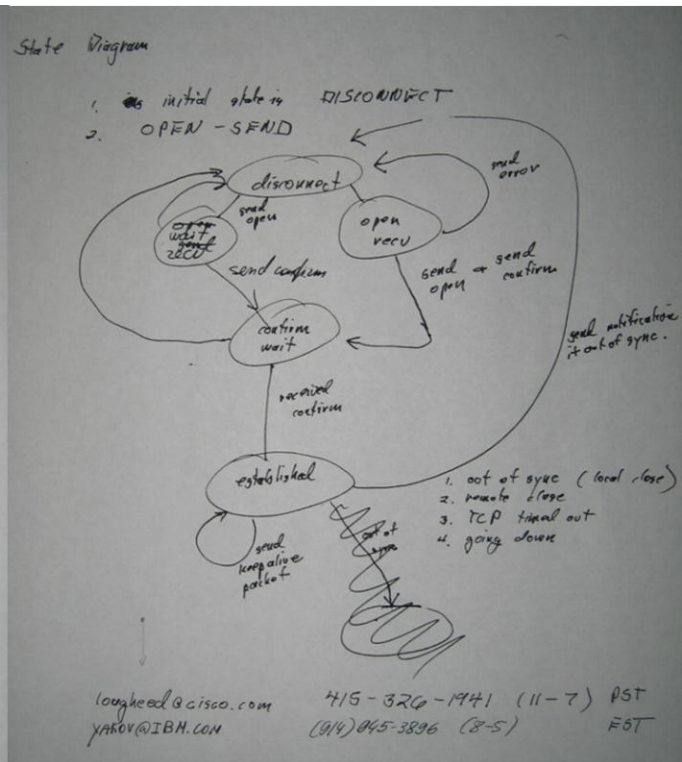 State Diagram
1. initial state is DISCONNECT
2. OPEN - SEND
disconnect
send error
send open
open recv
wait
recv
send confirm
send open & send confirm
confirm wait
send notification
if out of sync.
received confirm
established
1. out of sync (local close)
2. remote close
3. TCP timed out
4. going down
out of sync
send keepalive packet
lougheed@cisco.com 415-326-1941 (11-7) PST
YAKOV@IBM.COM (914) 945-3896 (8-5) EST